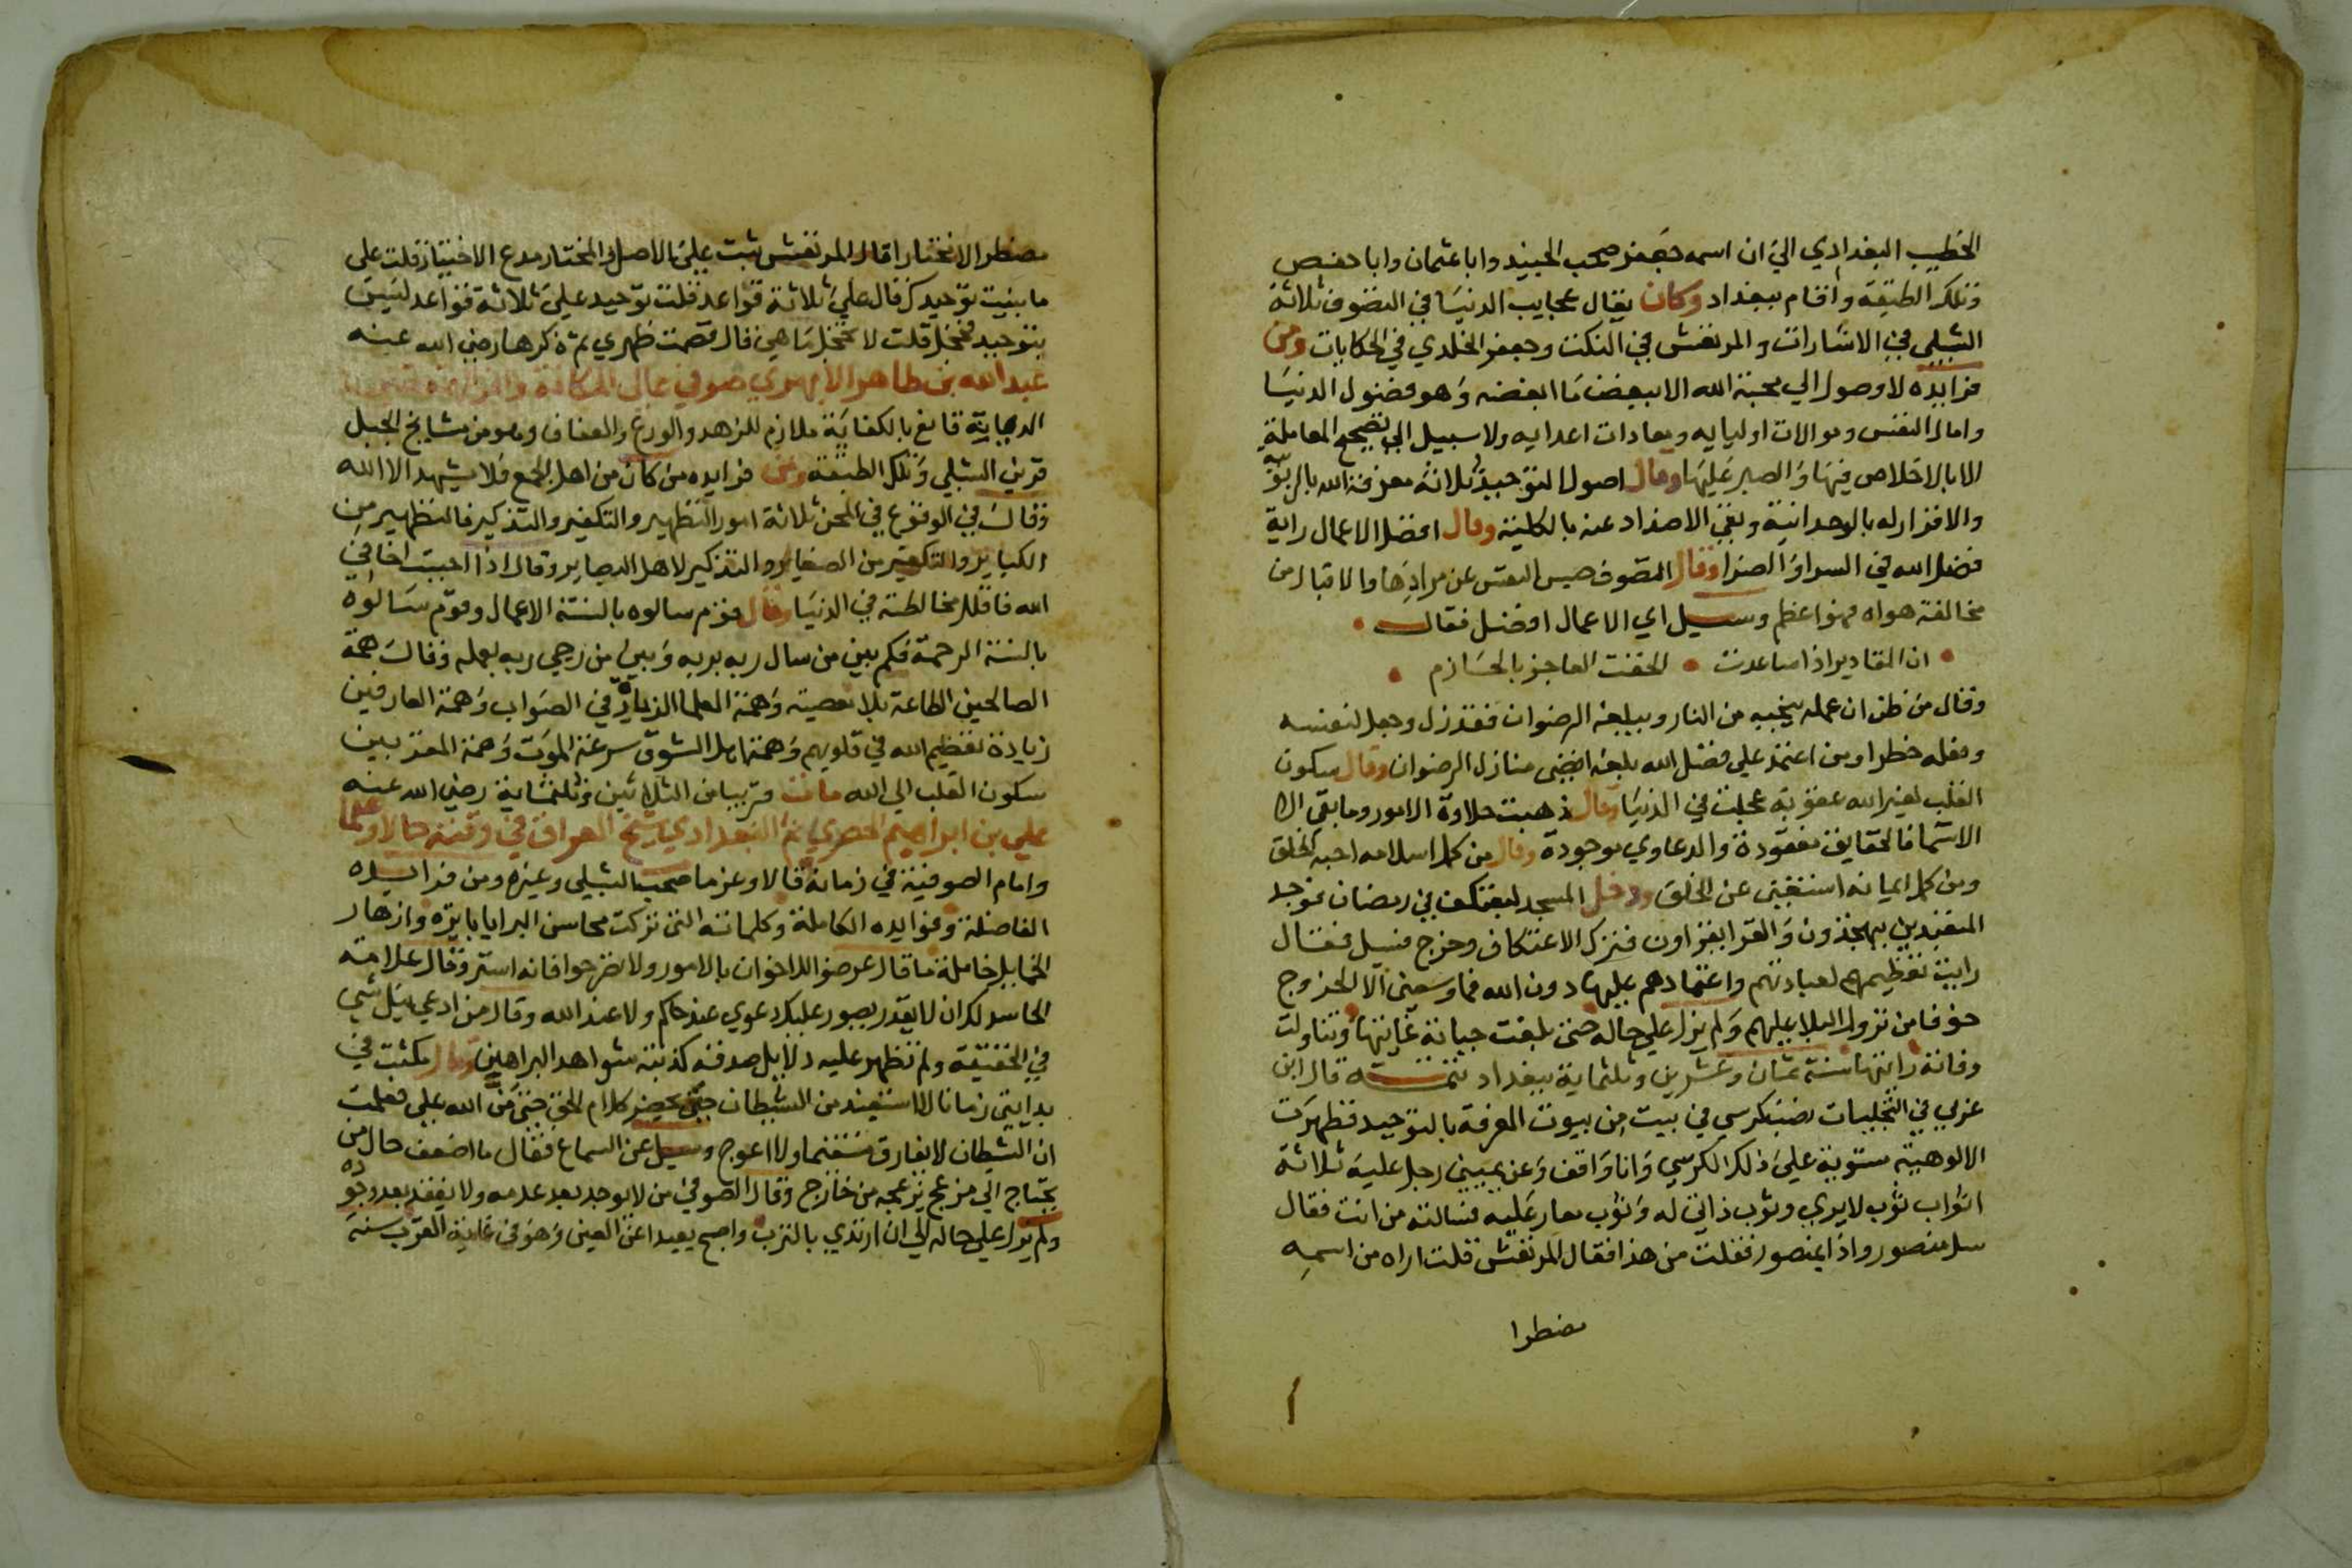 الخطيب البغدادي الي ان اسمه جعفر صحب الجنيد وابا عثمان وابا حفص
وتلك الطبقة واقام ببغداد وكان يقال عجايب الدنيا في التصوف ثلاثة
الشبلي في الاشارات والمرتعش في النكت وجعفر الخلدي في الحكايات ومن
فوايده لا وصول الي محبة الله الا ببغض ما ابغضه وهو فضول الدنيا
واماني النفس وموالات اوليايه ومعادات اعدايه ولا سبيل الي تصحيح المعاملة
الا بالاخلاص فيها والصبر عليها وقال اصول التوحيد ثلاثة معرفة الله بالربوبية
والاقرار له بالوحدانية ونفي الاضداد عنه بالكلية وقال افضل الاعمال راية
فضل الله في السرا والضرا وقال التصوف حبس النفس عن مرادها والاقبال من
مخالفة هواه فهو اعظم وسيل اي الاعمال افضل فقال
ان المقادير اذا ساعدت الحقت العاجز بالحازم
وقال من ظن ان عمله ينجيه من النار ويبلغه الرضوان فقد زل وجعل لنفسه
وفعله خطرا ومن اعتمد علي فضل الله بلغه اقصي منازل الرضوان وقال سكون
القلب لغير الله عقوبة عجلت في الدنيا وقال ذهبت حلاوة الامور وما بقي الا
الاسما فالحقايق مفقودة والدعاوي موجودة وقال من كمل اسلامه احبه الخلق
ومن كمل ايمانه استغني عن الخلق ودخل المسجد ليعتكف في رمضان فوجد
المتعبدين يتهجدون والقرا يقراون فترك الاعتكاف وخرج فسيل فقال
رايت تعظيمهم لعبادتهم واعتمادهم عليها دون الله فما وسعني الا الخروج
خوفا من نزول البلا عليهم ولم يزل علي حاله حتي بلغت حياته غايتها وتناولت
وفاته رايتها سنة ثمان وعشرين وثلثماية ببغداد تتمة قال ابن
عربي في التجليات نصب كرسي في بيت من بيوت المعرفة بالتوحيد فظهرت
الالوهية مستوية علي ذلك الكرسي وانا واقف وعن يميني رجل عليه ثلاثة
اثواب ثوب لا يري وثوب ذاتي له وثوب معار عليه فسالته من انت فقال
سل منصور واذا بمنصور فقلت من هذا فقال المرتعش قلت اراه من اسمه
مضطرا
مضطرا لا مختارا قال المرتعش ثبت علي الاصل والمختار مدع الاختيار قلت علي
ما بنيت توحيدك قال علي ثلاثة قواعد قلت توحيد علي ثلاثة قواعد ليس
بتوحيد فخجل قلت لا تخجل ما هي قال قصمت ظهري ثم ذكرها رضي الله عنه
عبد الله بن طاهر الابهري صوفي عالي المكانة
قانع بالكفاية ملازم للزهد والورع والعفاف وهو من مشايخ الجبل
قرين الشبلي وتلك الطبقة ومن فوايده من كان من اهل الجمع فلا يشهد الا الله
وقال في الوقوع في المحن ثلاثة امور التطهير والتكفير والتذكير فالتطهير من
الكباير والتكفير من الصغاير والتذكير لاهل البصاير وقال اذا احببت اخا في
الله فاقلل مخالطته في الدنيا وقال قوم سالوه بالسنة الاعمال وقوم سالوه
بالسنة الرحمة فكم بين من سال ربه بربه وبين من رجي ربه بعمله وقال همة
الصالحين الطاعة بلا معصية وهمة العلما الزيادة في الصواب وهمة العارفين
زيادة تعظيم الله في قلوبهم وهمة اهل الشوق سرعة الموت وهمة المقربين
سكون القلب الي الله مات قريبا من الثلاثين وثلثماية رضي الله عنه
علي بن ابراهيم الحصري ثم البغدادي شيخ العراق في وقته حالا وعلما
وامام الصوفية في زمانه قالا وعزما صحب الشبلي وغيره ومن فرايده
الفاضلة وفوايده الكاملة وكلماته التي تركت محاسن البرايا بايرة وازهار
الخمايل خاملة ما قال عرضوا للاخوان بالامور ولا تصرحوا فانه استر وقال علامة
الحاسد لك ان لا يقدر يصور عليك دعوي عند حاكم ولا عند الله وقال من ادعي نيل شي
في الحقيقة ولم تظهر عليه دلايل صدقه كذبته شواهد البراهين وقال مكثت في
بدايتي زمانا لا استعيذ من الشيطان حتي يحضر كلام الحق حتي من الله علي فعلمت
ان الشيطان لا يفارق مستقيما ولا اعوج وسيل عن السماع فقال ما اضعف حال من
يحتاج الي مزعج يزعجه من خارج وقال الصوفي من لا يوجد بعد عدمه ولا يفقد بعد وجوده
ولم يزل علي حاله الي ان ارتدي بالترب واصبح بعيدا عن العين وهو في غاية القرب سنة